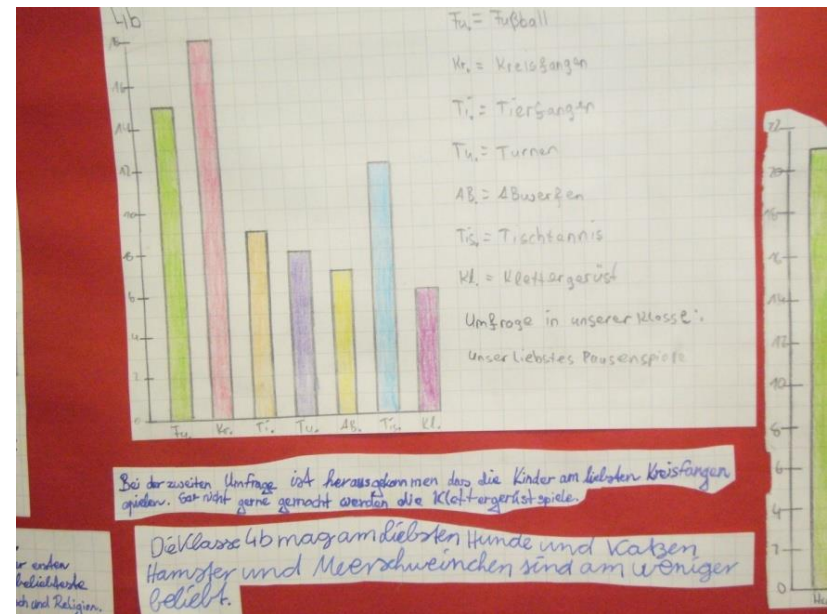 4b
Fu. = Fußball
Kr. = Kreisfangen
Ti. = Tierfangen
Tu. = Turnen
AB. = ABwerfen
Tis. = Tischtennis
Kl. = Klettergerüst
Umfrage in unserer Klasse:
Unser liebstes Pausenspiel
18
16
14
12
10
8
6
4
2
0
Fu. Kr. Ti. Tu. AB. Tis. Kl.
Bei der zweiten Umfrage ist herausgekommen das die Kinder am liebsten Kreisfangen
spielen. Gar nicht gerne gemacht werden die Klettergerüstspiele.
Die Klasse 4b mag am liebsten Hunde und Katzen
Hamster und Meerschweinchen sind am weniger
beliebt.
er ersten
beliebteste
und Religion.
22
20
18
16
14
12
10
8
6
4
2
0